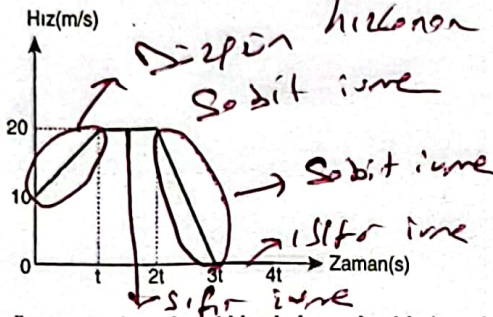 Hız(m/s)
Düzgün hızlanan
Sabit ivme
20
Sabit ivme
10
sıfır ivme
0
t
2t
3t
4t
Zaman(s)
sıfır ivme